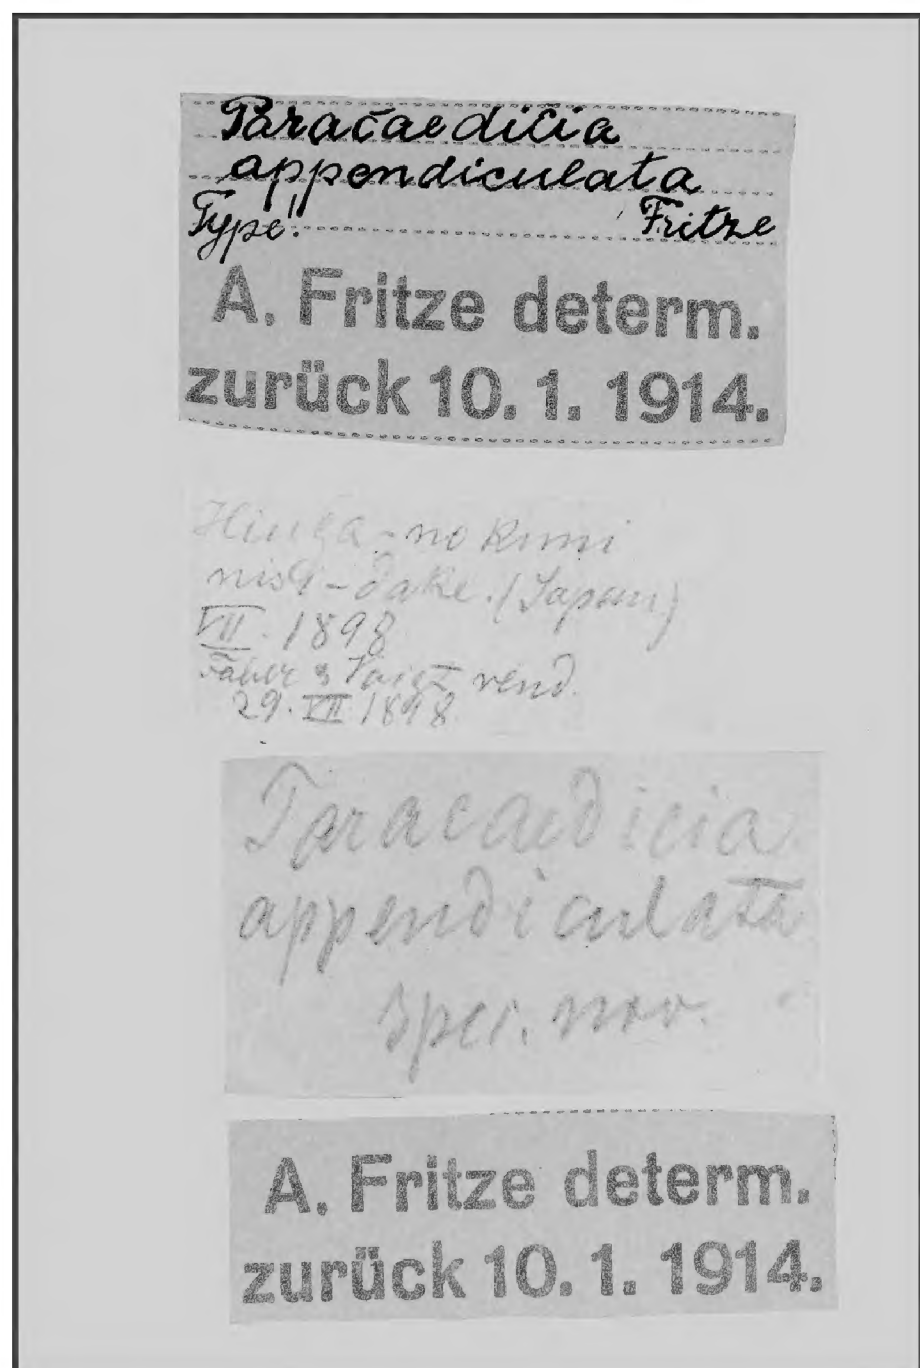 Paracaedicia
appendiculata
Type! Fritze
A. Fritze determ.
zurück 10. 1. 1914.
Hiuga-no Kuni
nish-dake. (Japan)
VII. 1898
Faber & Voigt vend.
29. XII 1898
Paracaedicia
appendiculata
spec. nov.
A. Fritze determ.
zurück 10. 1. 1914.